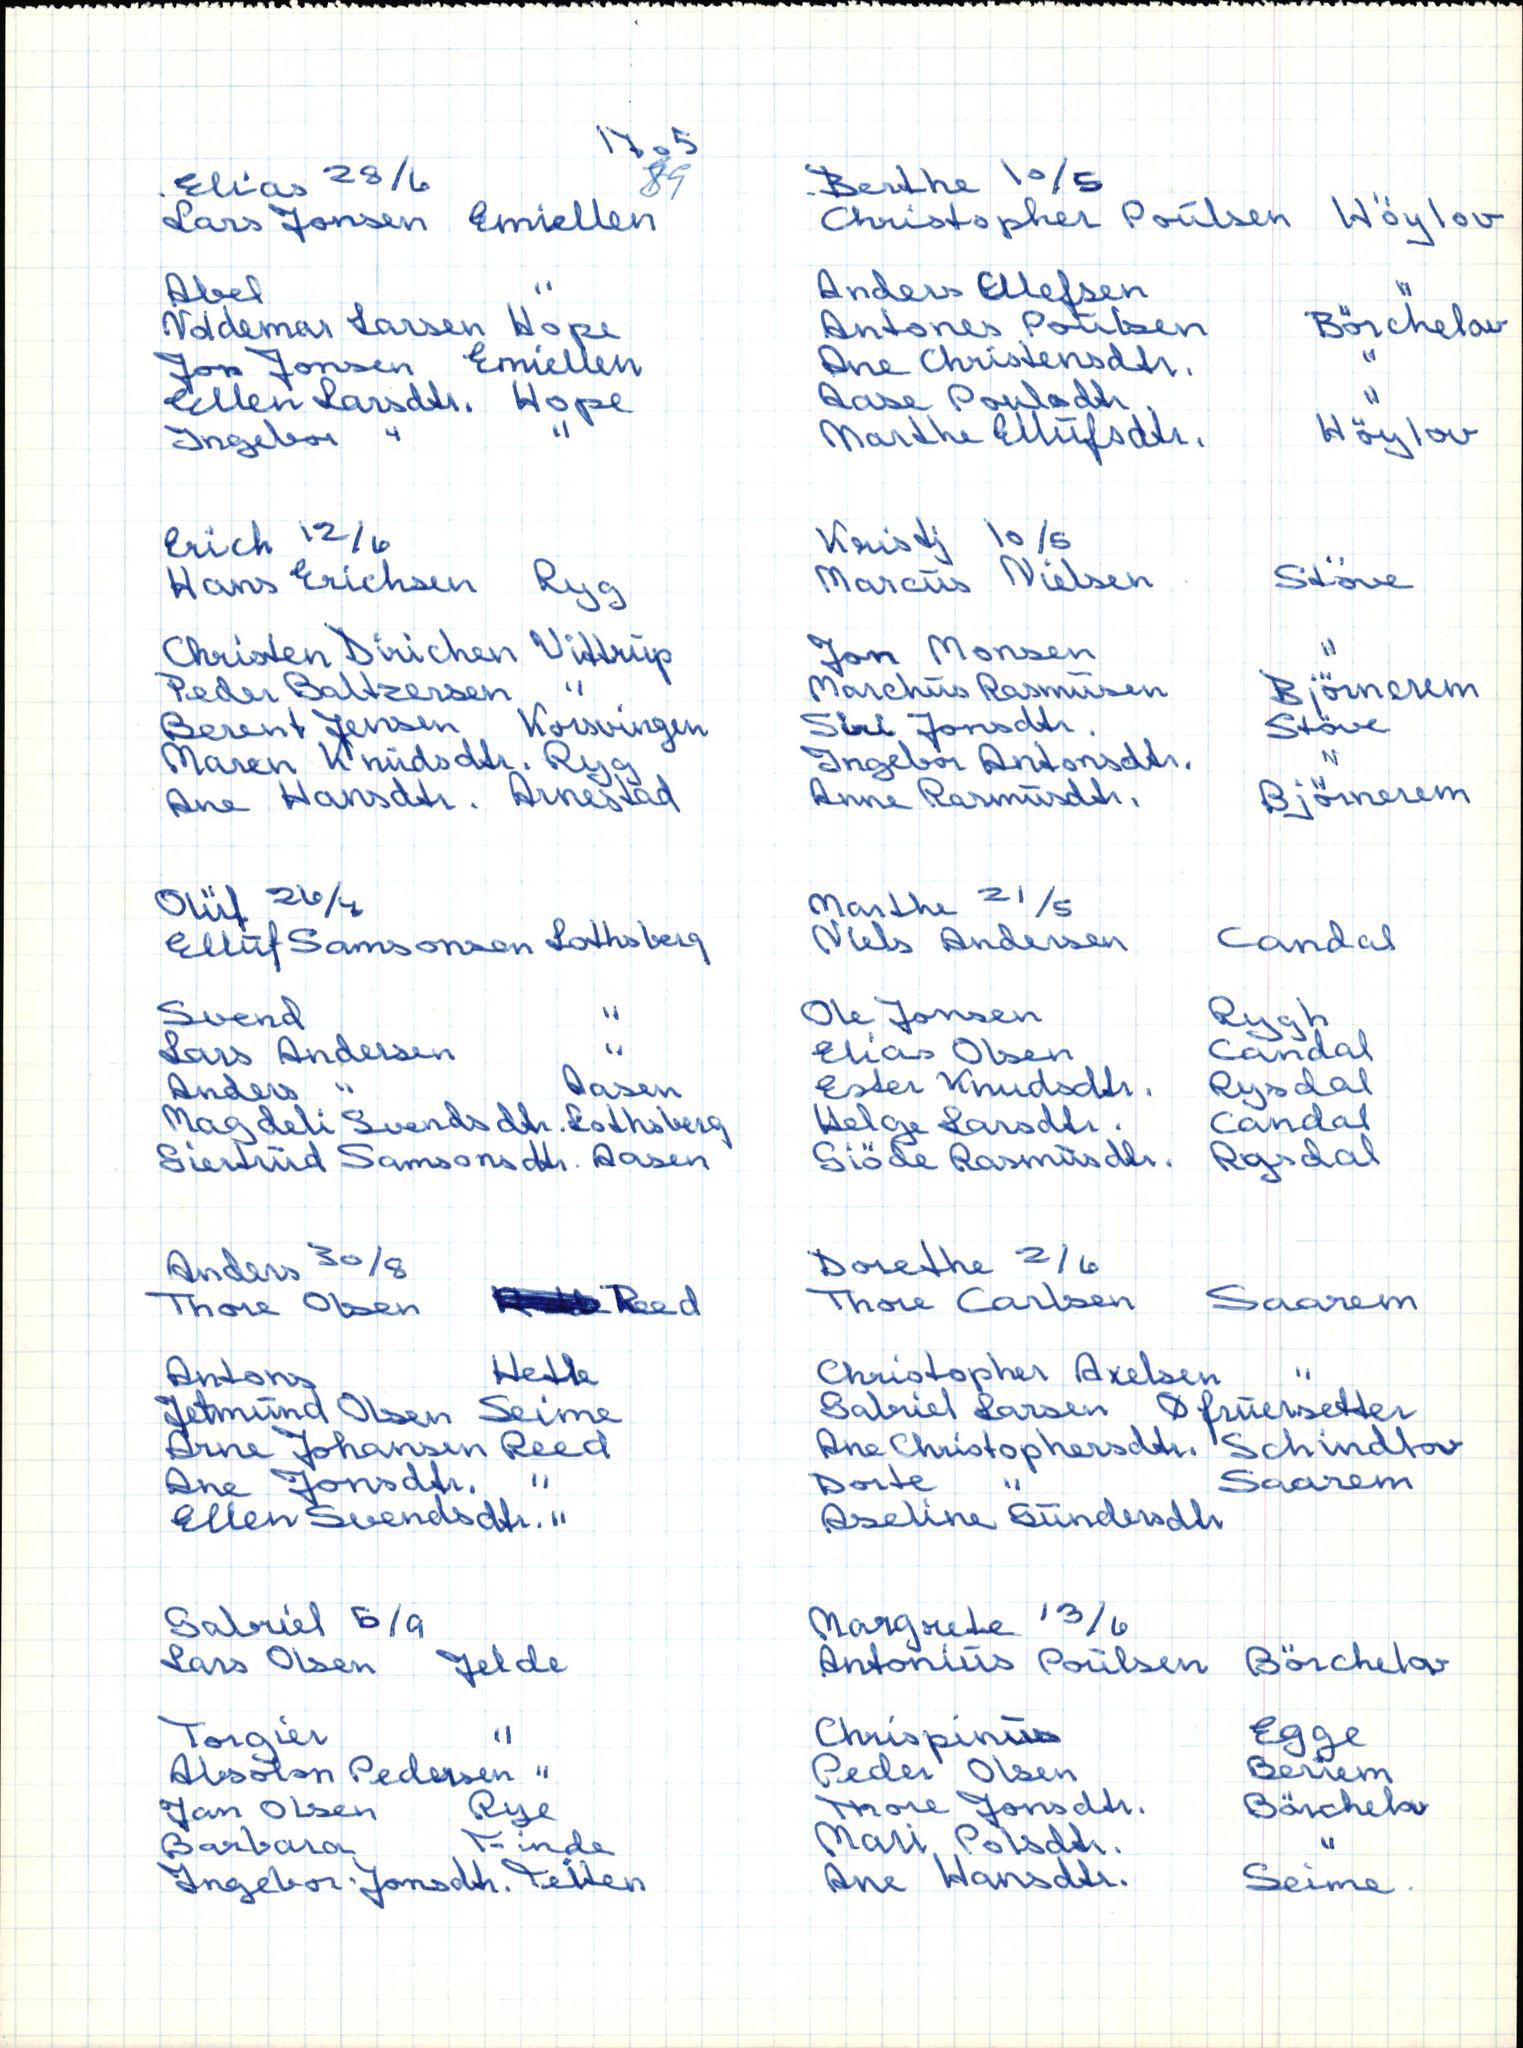 1705
89
Elias 28/6
Lars Jonsen Emiellen
Abel "
Voldemar Larsen Hope
Jon Jonsen Emiellen
Ellen Larsdtr. Hope
Ingebor " "
Erich 12/6
Hans Erichsen Ryg
Christen Dirichen Vittrüp
Peder Baltzersen "
Berent Jensen Korsvingen
Maren Knüdsdtr. Ryg
Ane Hansdtr. Arnestad
Olüf 26/4
Ellüf Samsonsen Lothsberg
Svend "
Lars Andersen "
Anders " Aasen
Magdeli Svendsdtr. Lothsberg
Giertrüd Samsonsdtr. Aasen
Anders 30/8
Thore Olsen Reed
Antons Hetle
Jetmünd Olsen Seime
Arne Johansen Reed
Ane Jonsdtr. "
Ellen Svendsdtr. "
Gabriel 5/9
Lars Olsen Jelde
Torgier "
Absolon Pedersen "
Jan Olsen Rye
Barbara Tinde
Ingebor Jonsdtr. Teiten
Berthe 10/5
Christopher Poülsen Höylov
Anders Ellefsen "
Antones Poülsen Börchelov
Ane Christensdtr. "
Aase Poulsdtr. "
Marthe Ellüfsdtr. Höylov
Kristj 10/5
Marcüs Nielsen Stöve
Jon Monsen "
Marchüs Rasmüsen Björnerem
Siri Jonsdtr. Stöve
Ingebor Antonsdtr. "
Anne Rasmüsdtr. Björnerem
Marthe 21/5
Niels Andersen Candal
Ole Jonsen Rygh
Elias Olsen Candal
Ester Knudsdtr. Rysdal
Helge Larsdtr. Candal
Giöde Rasmüsdtr. Rysdal
Dorethe 2/6
Thore Carlsen Saarem
Christopher Axelsen "
Gabriel Larsen Øfrüersetter
Ane Christophersdtr. Schindlov
Dorte " Saarem
Aseline Gündersdtr
Margrete 13/6
Antoniüs Poülsen Börchelov
Chrispinüs Egge
Peder Olsen Beriem
Thore Jonsdtr. Börchelov
Mari Polsdtr. "
Ane Hansdtr. Seime.